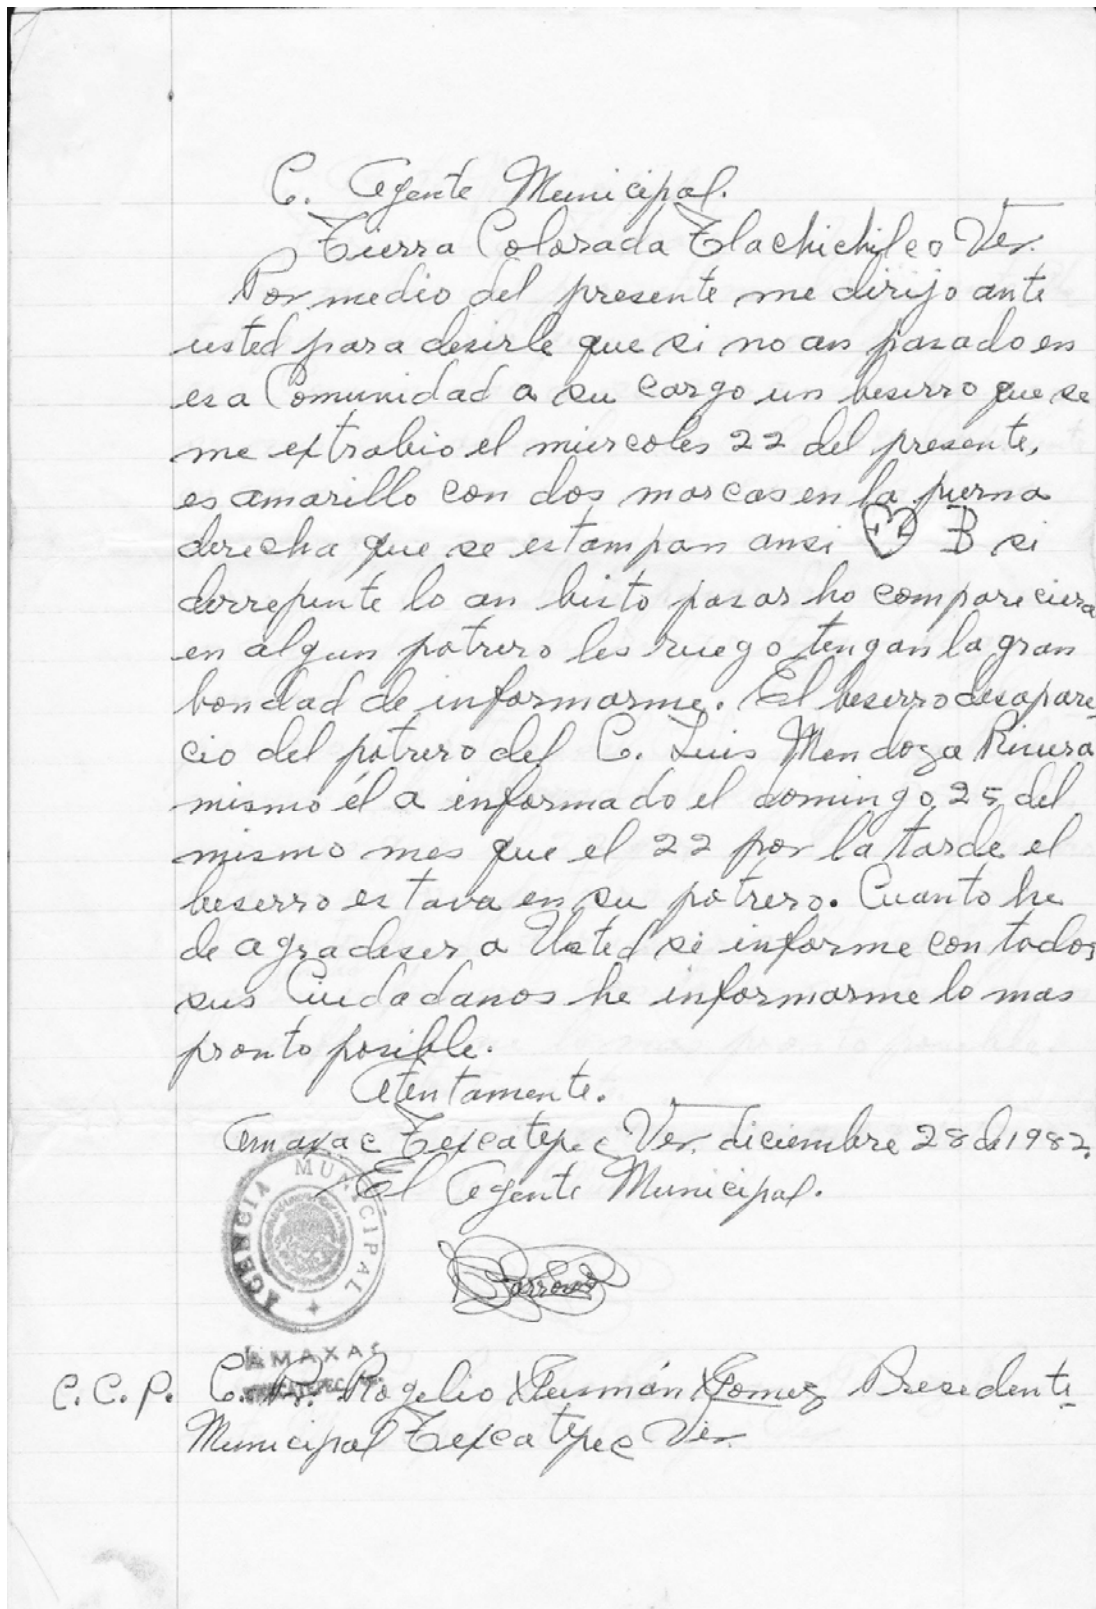 C. Agente Municipal.
Tierra Colorada Tlachichilco Ver.
Por medio del presente me dirijo ante
usted para desirle que si no an pasado en
esa Comunidad a su cargo un beserro que se
me extrabio el miercoles 22 del presente,
es amarillo con dos marcas en la pierna
derecha que se estampan ansi B si
derrepente lo an bisto pasar ho compareciera
en algun potrero les ruego tengan la gran
bondad de informarme. El beserro desapare-
cio del potrero del C. Luis Mendoza Rivera
mismo él a informado el domingo 25 del
mismo mes que el 22 por la tarde el
beserro estava en su potrero. Cuanto he
de agradeser a Usted si informe con todos
sus Ciudadanos he informarme lo mas
pronto posible.
Atentamente.
Amaxac Texcatepec Ver. diciembre 28 de 1982.
El Agente Municipal.
AGENCIA MUNICIPAL
AMAXAC
C.C.P. C. Rogelio Gusmán Gomez Presidente
Municipal Texcatepec Ver